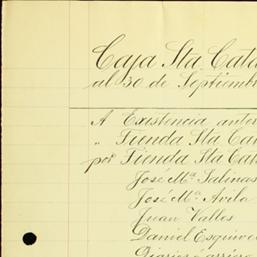 Caja Sta Cata
al 30 de Septiembr
A Existencia anter
" Tienda Sta Cat
por Tienda Sta Cat
José Ma. Salinas
José Ma. Avila
Juan Valles
Daniel Esquivel
Diarios arri